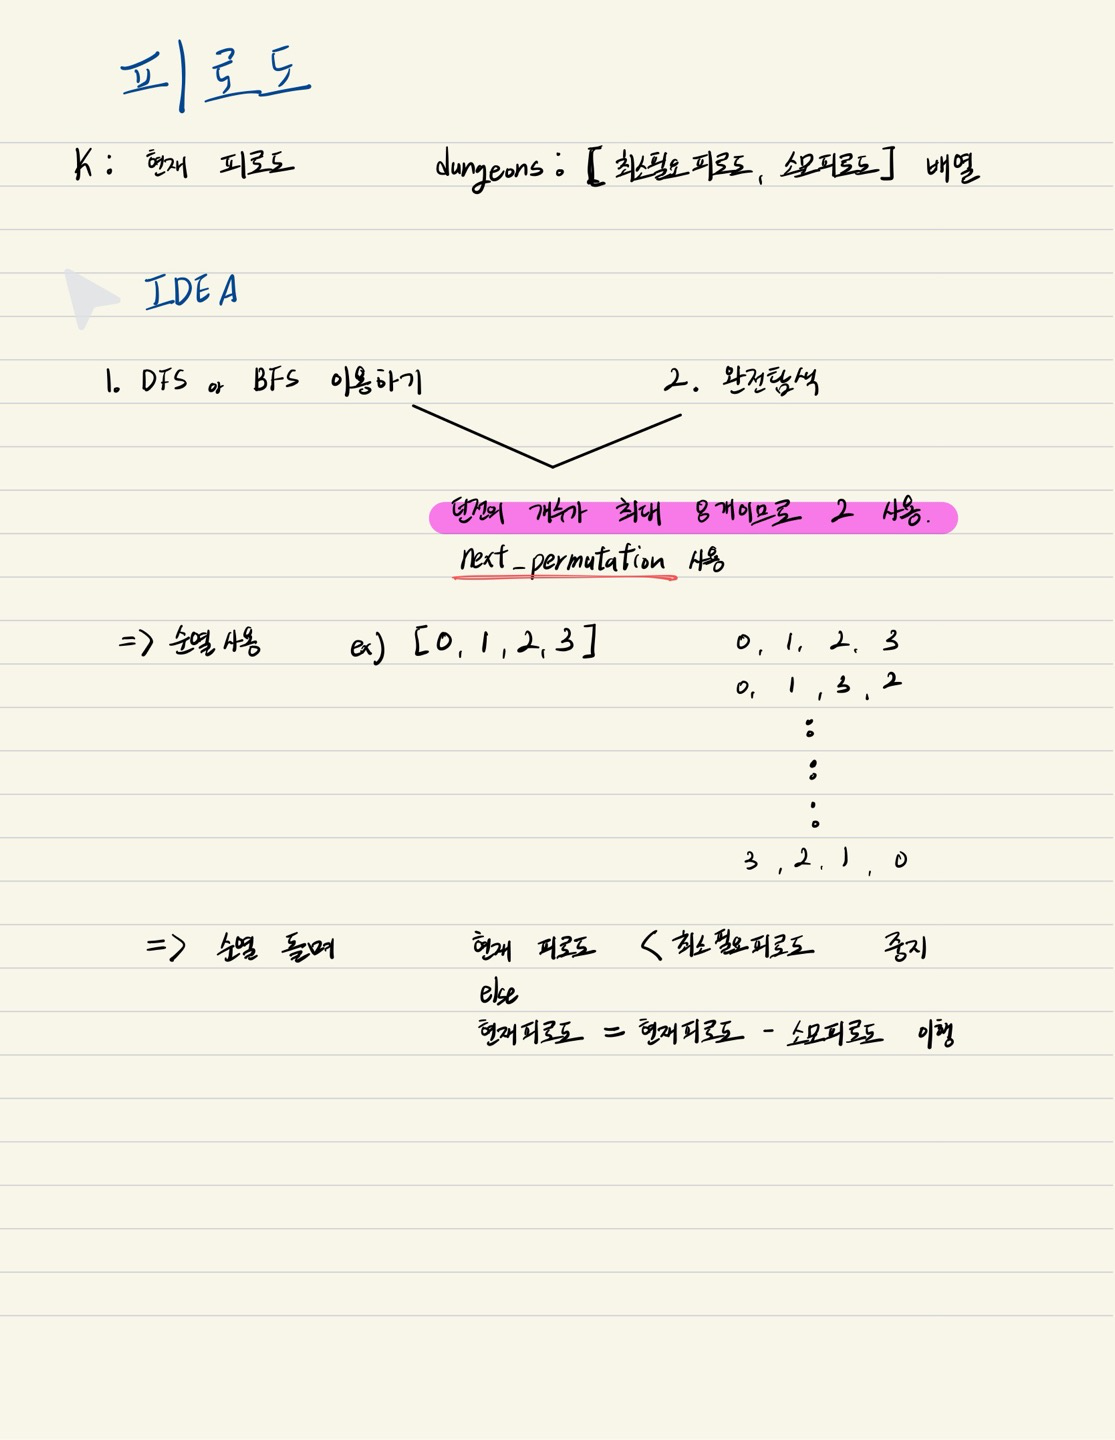 피로도
K : 현재 피로도 dungeons : [ 최소필요피로도, 소모피로도 ] 배열
IDEA
1. DFS or BFS 이용하기 2. 완전탐색
던전의 개수가 최대 8개이므로 2 사용.
next_permutation 사용
=> 순열 사용 ex) [0, 1, 2, 3] 0, 1, 2, 3
0, 1, 3, 2
:
:
:
3, 2, 1, 0
=> 순열 돌며 현재 피로도 < 최소필요피로도 중지
else
현재피로도 = 현재피로도 - 소모피로도 이행